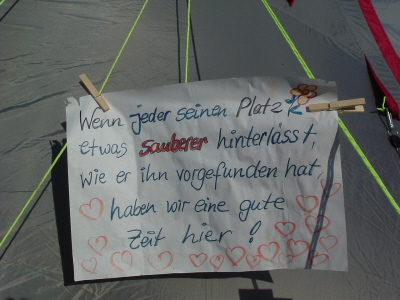 Wenn jeder seinen Platz
etwas sauberer hinterlässt,
wie er ihn vorgefunden hat,
haben wir eine gute
Zeit hier!